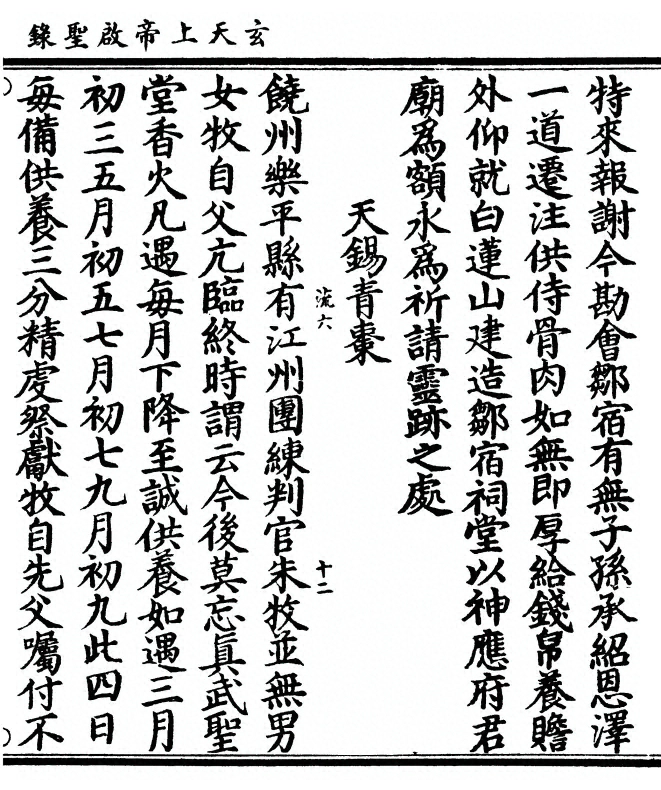 玄天上帝啟聖錄
特來報謝今勘會鄒宿有無子孫承紹恩澤
一道遷注供侍骨肉如無即厚給錢帛養贍
外仰就白蓮山建造鄒宿祠堂以神應府君
廟為額永為祈請靈跡之處
天錫青棗
流六
十二
饒州樂平縣有江州團練判官朱牧並無男
女牧自父亢臨終時謂云今後莫忘真武聖
堂香火凡遇每月下降至誠供養如遇三月
初三五月初五七月初七九月初九此四日
每備供養三分精虔祭獻牧自先父囑付不